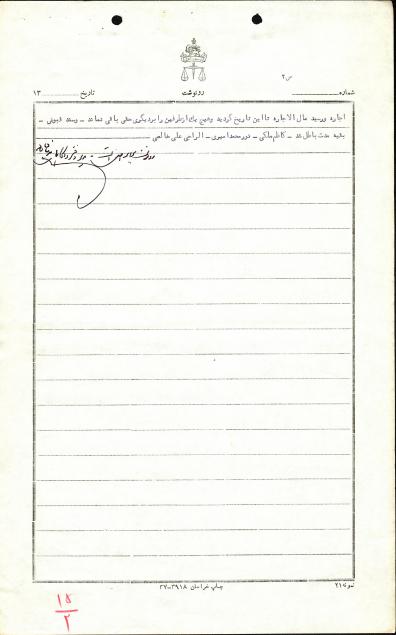 ص ۲
شماره رونوشت تاریخ ۱۳
اجاره ورسید مال الاجاره تا این تاریخ گردید وهیچ یک ازطرفین رابردیگری حقی باقی نماند - وسند قبوض -
بقیه مدت باطل شد - کاظم ملکی - نورمحمد امیری - الراجی علی خالصی
رونوشت برابر اصل است
نمونه ۲۱ چاپ خراسان ۳۹۱۸-۳۷
۱۵
۲